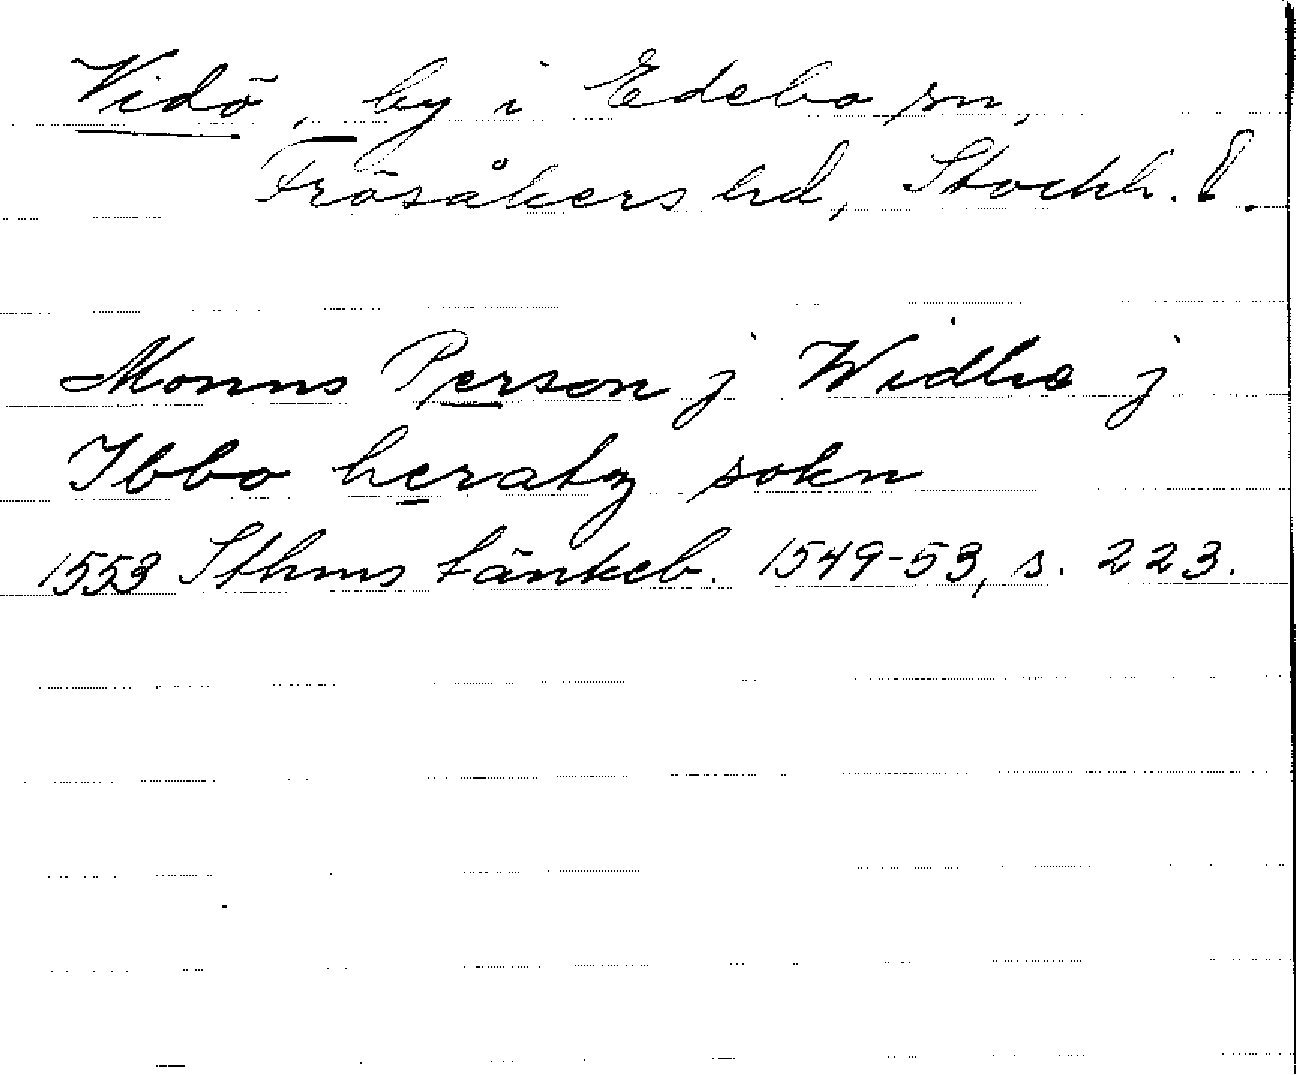 Vidö, by i Edebo sn,
Frösåkers hd, Stockh. l.
Monns Person j Widhe j
Ibbo heratz sokn
1553 Sthms tänkeb. 1549-53, s. 223.